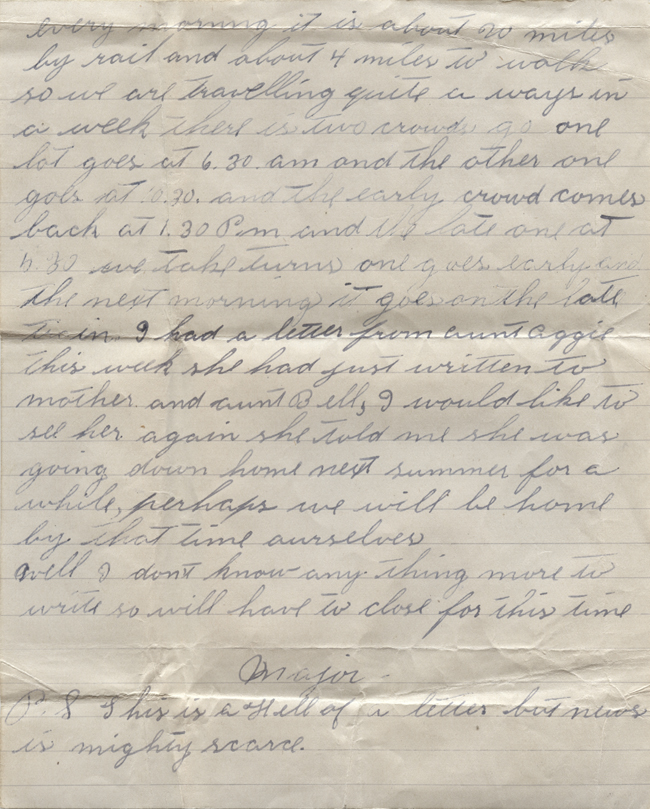 every morning it is about 20 miles
by rail and about 4 miles to walk
so we are travelling quite a ways in
a week there is two crowds go one
lot goes at 6.30. am and the other one
goes at 10.30. and the early crowd comes
back at 1.30 Pm and the late one at
4.30 we take turns one goes early and
the next morning it goes on the late
train. I had a letter from aunt Aggie
this week she had just written to
mother and aunt Bell, I would like to
see her again she told me she was
going down home next summer for a
while, perhaps we will be home
by that time ourselves
well I dont know any thing more to
write so will have to close for this time
Major
P. S This is a Hell of a letter but news
is mighty scarce.